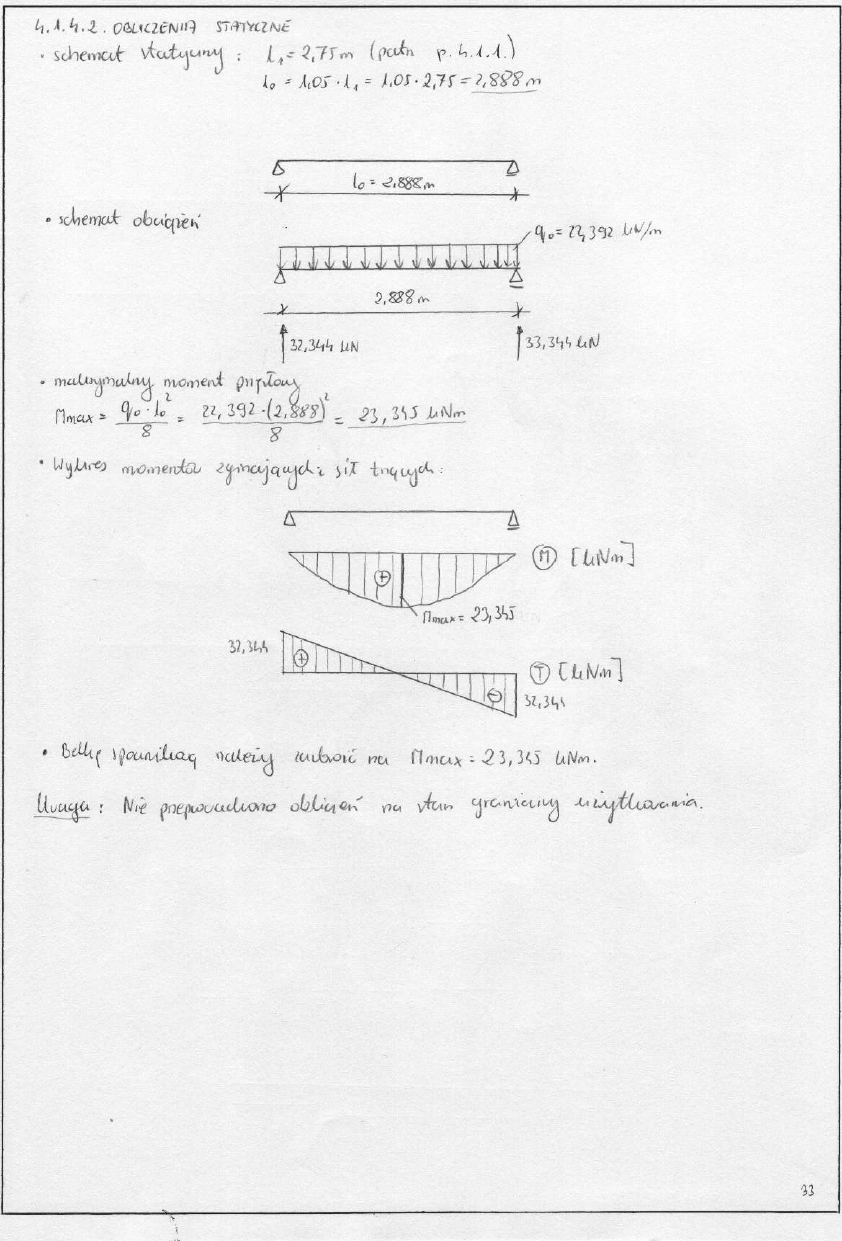 4.1.4.2. OBLICZENIA STATYCZNE
• schemat statyczny : l₁ = 2,75 m (patrz p. 4.1.1.)
l₀ = 1,05 · l₁ = 1,05 · 2,75 = 2,888 m
l₀ = 2,888 m
• schemat obciążeń
q₀ = 22,392 kN/m
2,888 m
32,344 kN
33,344 kN
• maksymalny moment przęsłowy
Mmax = q₀ · l₀² / 8 = 22,392 · (2,888)² / 8 = 23,345 kNm
• Wykres momentów zginających i sił tnących :
M [kNm]
+
Mmax = 23,345
32,344
+
T [kNm]
-
32,344
• Belkę spocznikową należy zazbroić na Mmax = 23,345 kNm.
Uwaga : Nie przeprowadzono obliczeń na stan graniczny użytkowania.
33